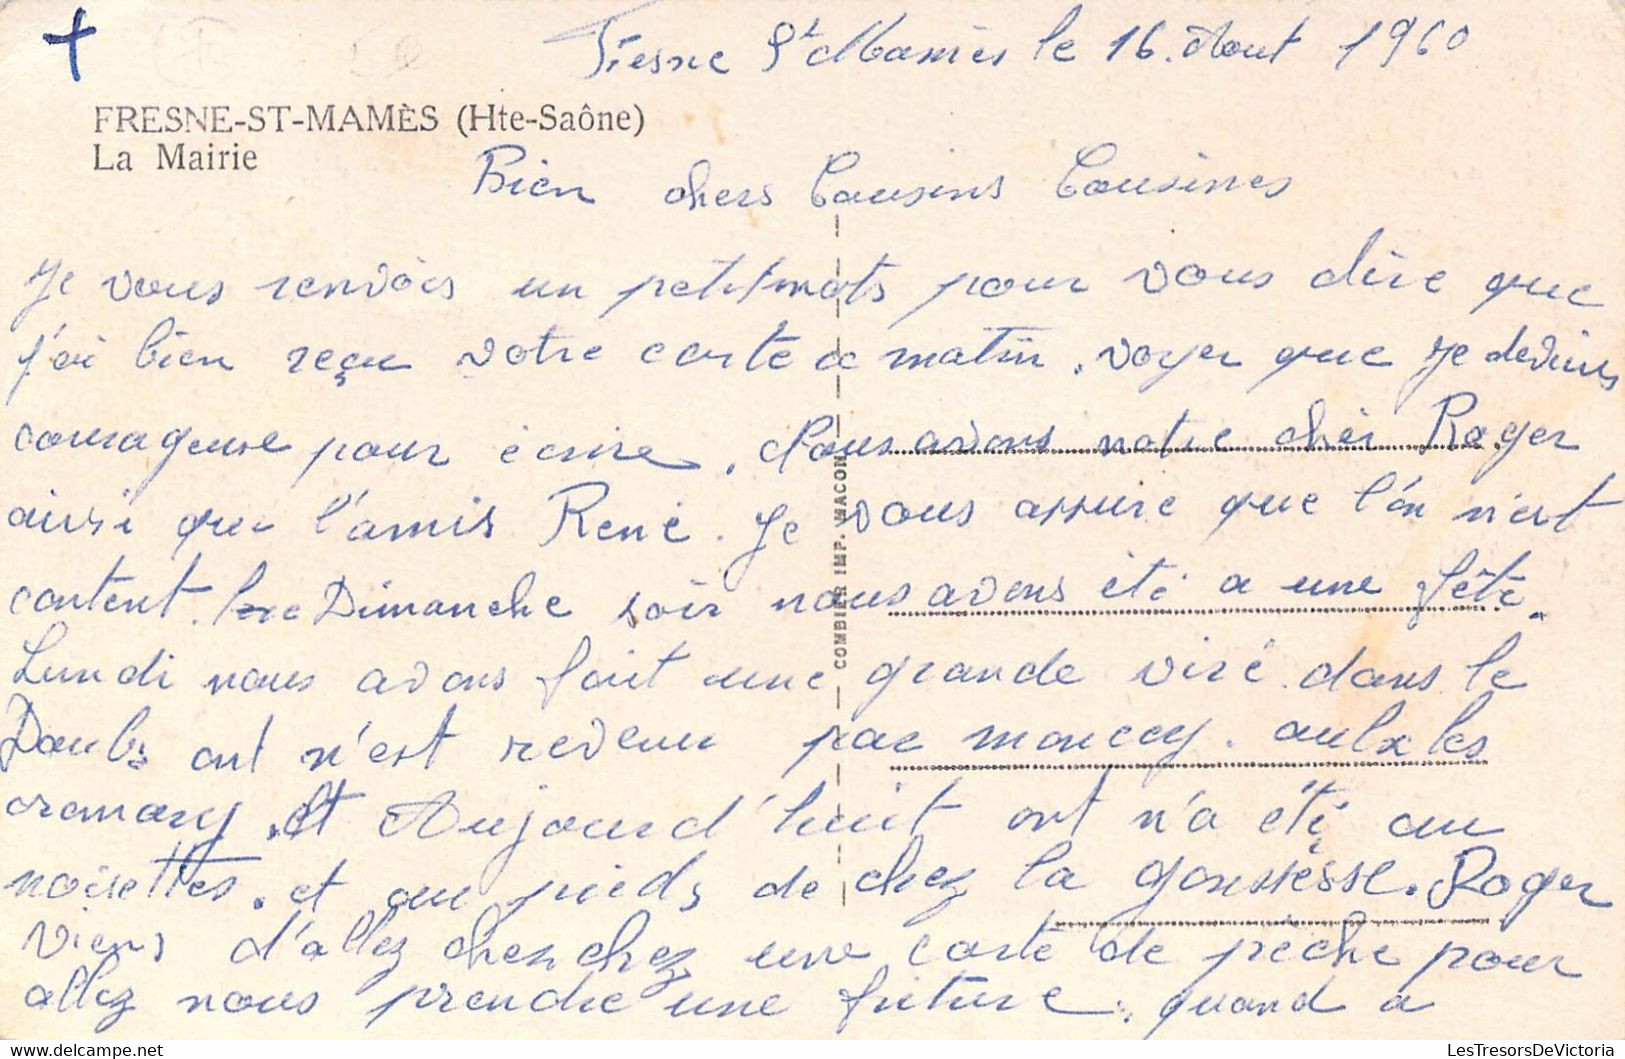 Fresne St Mamès le 16. Aout 1960
FRESNE-ST-MAMÈS (Hte-Saône)
La Mairie
Bien chers Cousins Cousines
Je vous renvois un petit mots pour vous dire que
j'ai bien reçu votre carte ce matin. voyer que je deviens
courageuse pour écrire. Nous avons notre cher Roger
ainsi que l'amis René. Je vous assure que l'on n'est
content. Dimanche soir nous avons été a une fête.
Lundi nous avons fait une grande viré dans le
Doubs ont n'est revenu par moncey. aulx les
cromary. et Aujourd'huit ont n'a été au
noisettes. et au pieds de chez la Roger
viens d'allez cherchez une carte de pêche pour
allez nous prendre une friture. quand a
COMBIER IMP. MACON
LesTresorsDeVictoria